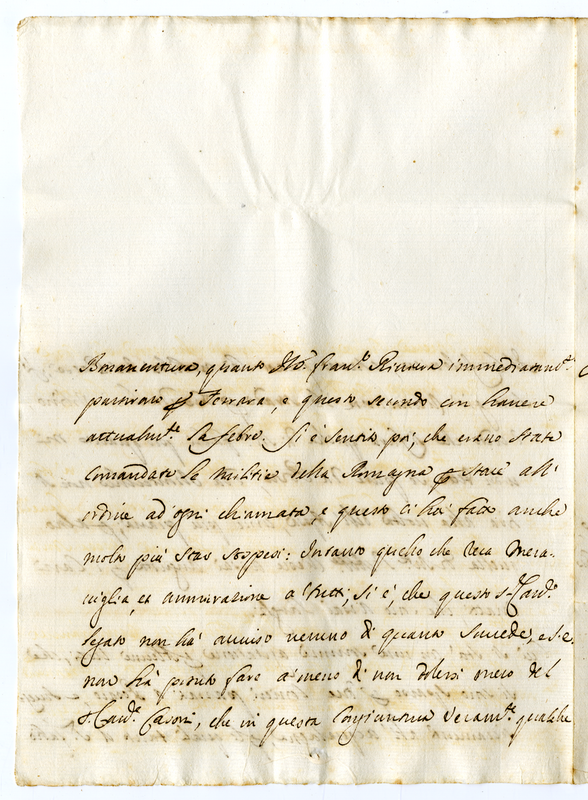 Bonaventura, quanto Fran.co Riviera immediatam.te
partirono p Ferrara, e questo secondo con havere
attualm.te la febre. Si è sentito poi, che erano state
comandate le militie della Romagna p stare all'
ordine ad ogni chiamata, e questo ci hà fatto anche
molto più star sospesi: Intanto quello che reca mera-
viglia, et ammirazione a tutti, si è, che questo s. Card.
legato non hà avviso veruno di quanto succede, e S. E.
non hà potuto fare a meno di non dolersi meco del
s. Card. Casoni, che in questa congiuntura veram.te qualche